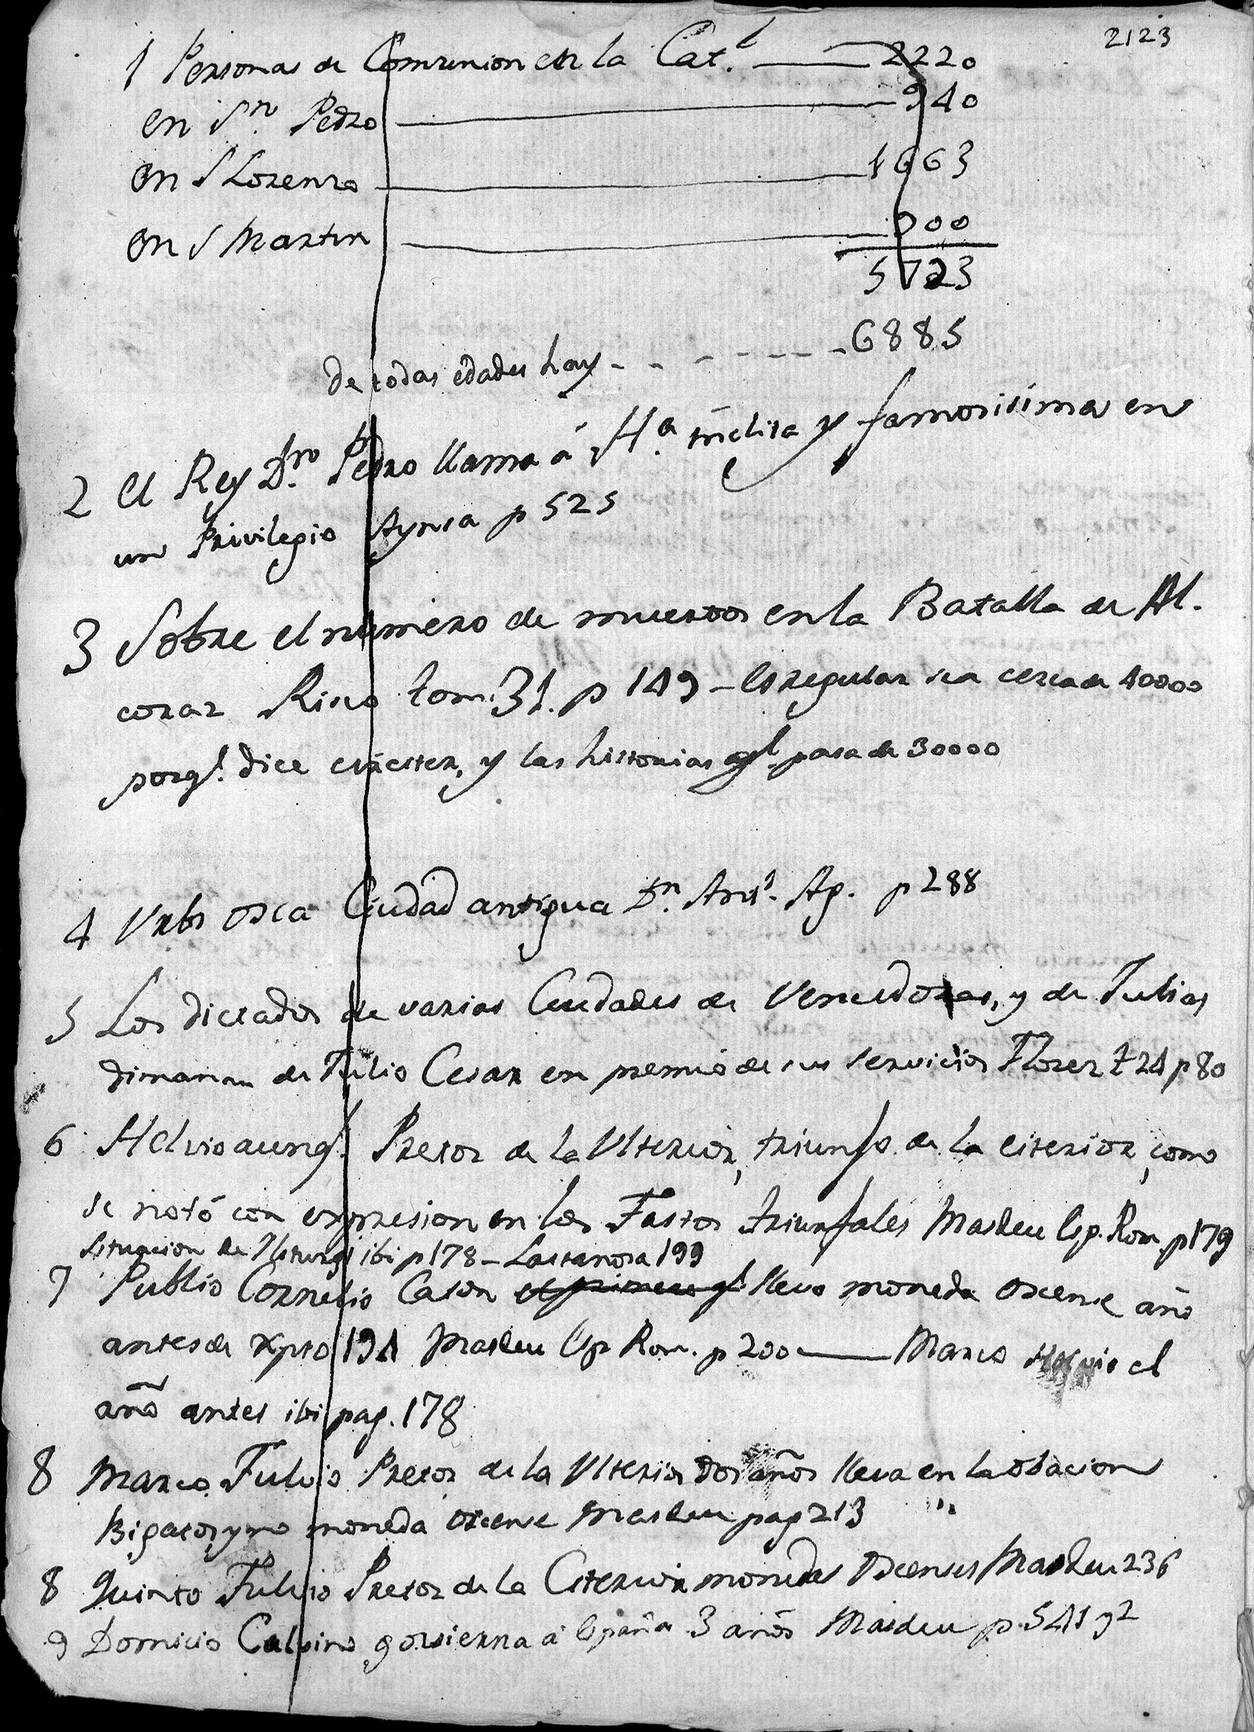 2123
1 Personas de Comunion en la Cat.l 2220
en Sn. Pedro 940
en S Lorenzo 1663
en S Martin 900
5723
de todas edades hay 6885
2 el Rey Dn. Pedro llama á Ha. inclita y famosisima en
un Privilegio Aynsa p 525
3 Sobre el numero de muertos en la Batalla de Al.
coraz Risco tom. 31. p 149 - Es regular sea cerca de 40000
porql. dice y las historias ql. pasa de 30000
4 Urbs osca Ciudad antigua Dn. Ant. Ag. p 288
5 Los dictados de varias Ciudades de Vencedoras, y de Julias
dimanan de Julio Cesar en premio de sus servicios Florez t 24 p 80
6 Helvio aunql. Pretor de la Ulterior, triunfo de la citerior, como
se notó con expresion en los Fastos triunfales Masdeu Esp. Rom. p 179
situacion de Iliturgi ibi p 178 - Lastanosa 199
7 Publio Cornelio Caton el primero ql llevo moneda oscense año
antes de Xpto 194 Masdeu Esp Rom. p 200 — Marco Helvio el
año antes ibi pag. 178
8 Marco Fulvio Pretor de la Ulterior dos años lleva en la obacion
Bigatos, y no moneda oscense Masdeu pag 213
8 Quinto Fulvio Pretor de la Citerior monedas Oscenses Masdeu 236
9 Domicio Calvino govierna á España 3 años Masdeu p. 541 y 2